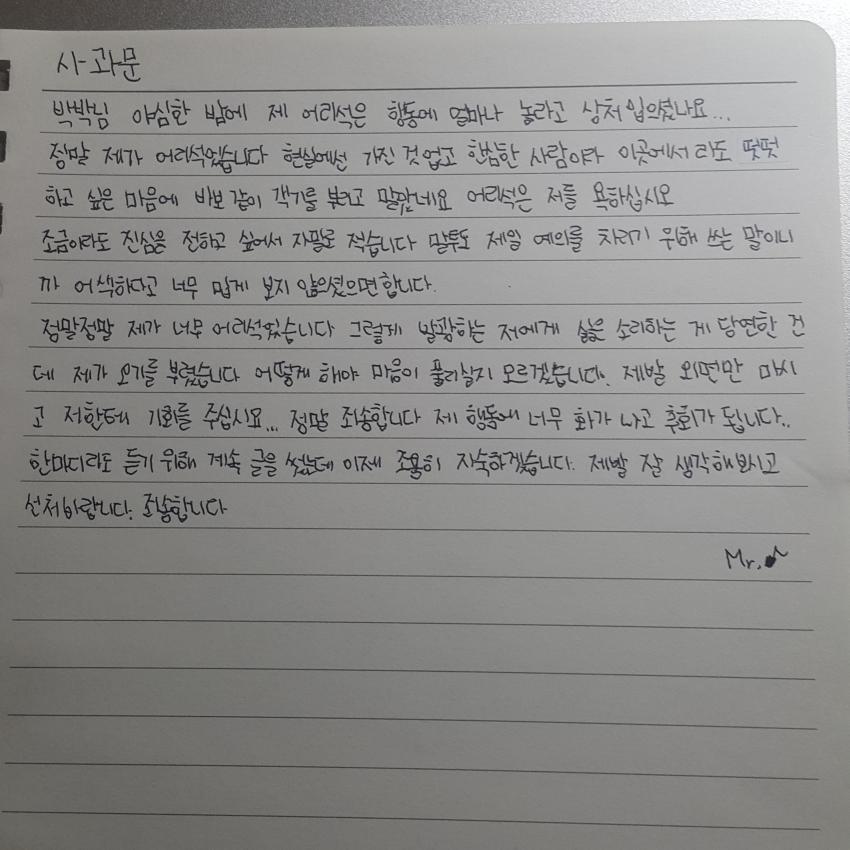 사과문
박박님 야심한 밤에 제 어리석은 행동에 얼마나 놀라고 상처입으셨나요...
정말 제가 어리석었습니다 현실에선 가진 것 없고 한심한 사람이라 이곳에서라도 떳떳
하고 싶은 마음에 바보같이 객기를 부리고 말았네요 어리석은 저를 욕하십시오
조금이라도 진심을 전하고 싶어서 자필로 적습니다 말투도 제일 예의를 차리기 위해 쓰는 말이니
까 어색하다고 너무 밉게 보지 않으셨으면합니다.
정말정말 제가 너무 어리석었습니다 그렇게 발광하는 저에게 싫은 소리하는 게 당연한 건
데 제가 오기를 부렸습니다 어떻게 해야 마음이 풀리실지 모르겠습니다. 제발 외면만 마시
고 저한테 기회를 주십시요... 정말 죄송합니다 제 행동에 너무 화가 나고 후회가 됩니다..
한마디라도 듣기 위해 계속 글을 썼는데 이제 조용히 자숙하겠습니다. 제발 잘 생각해보시고
선처바랍니다. 죄송합니다
Mr.♪